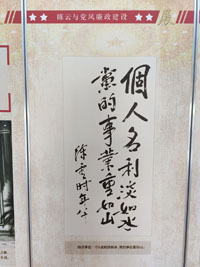 陈云与党风廉政建设
個人名利淡如水
黨的事業重如山
陳雲时年八